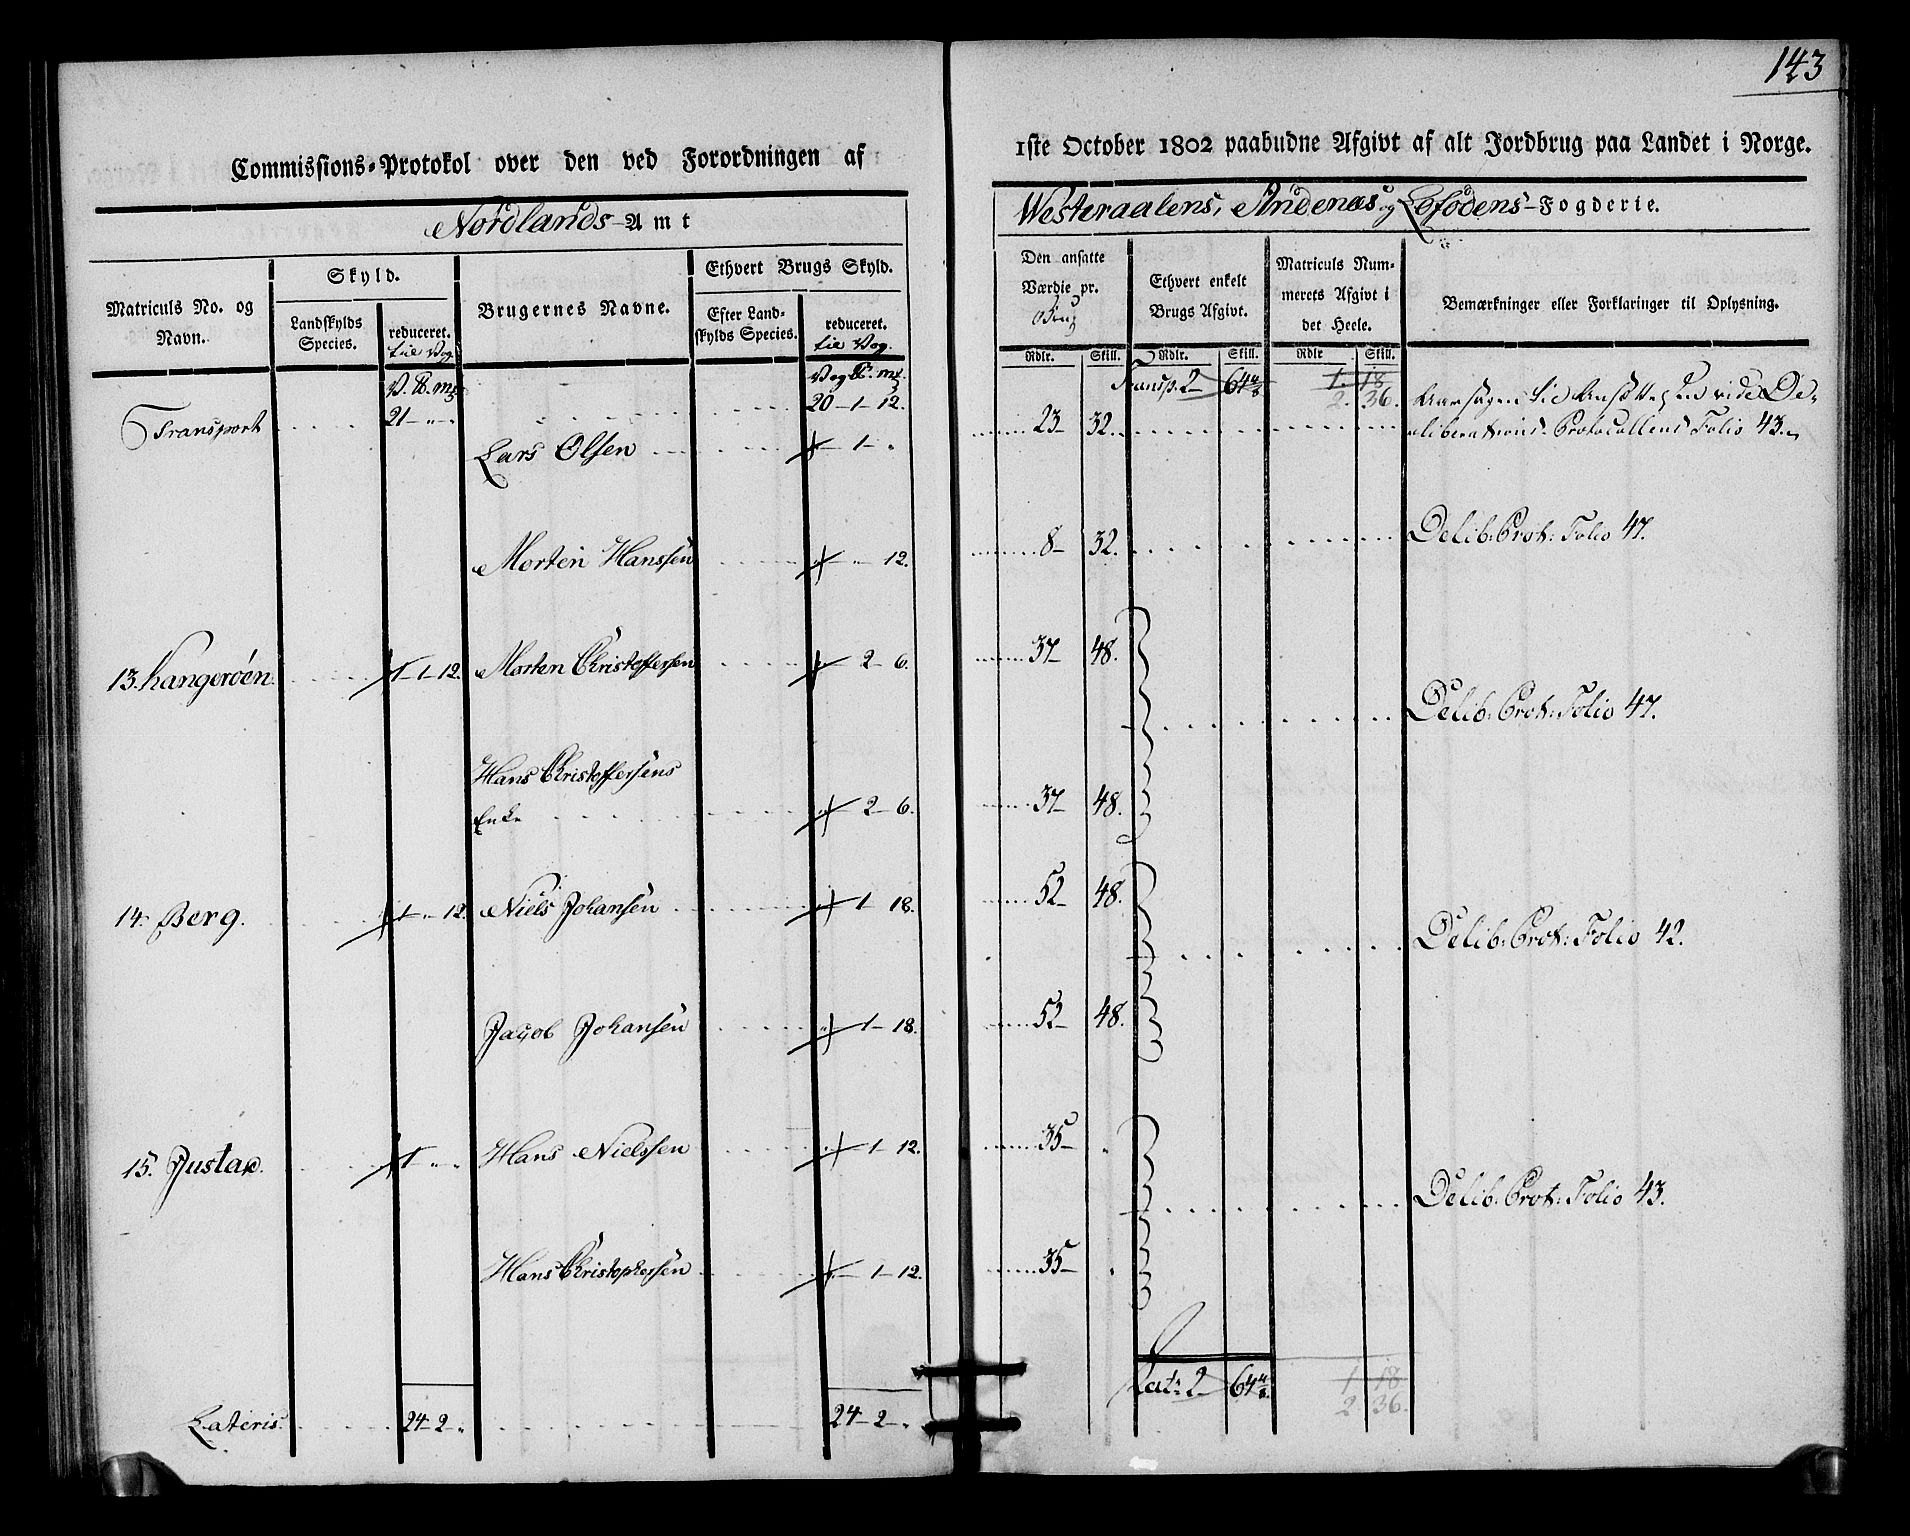 143
Commissions-Protokol over den ved Forordningen af
1ste October 1802 paabudne Afgivt af alt Jordbrug paa Landet i Norge.
Nordlands-Amt
Westeraalens, Andenæs og Lofodens-Fogderie.
Matriculs No. og Navn.
Skyld.
Landskylds Species.
reduceret. til Vog.
Brugernes Navne.
Ethvert Brugs Skyld.
Efter Landskylds Species.
reduceret. til Vog.
Den ansatte Værdie pr. Brug
Ethvert enkelt Brugs Afgivt.
Matriculs Nummerets Afgivt i det Heele.
Bemærkninger eller Forklaringer til Oplysning.
Rdlr. Skill. Rdlr. Skill. Rdlr Skill.
Transport 21 - " - " 20 - 1 - 12. Transp. 2 - 64 1. 18 2. 36.
Lars Olsen - 1 - " 23 - 32. Aarsagen til Ansættelsen vide Deliberations-Protocollens Folio 43.
Morten Hanssen " 12. 8 - 32. Delib: Prot: Folio 47.
13. Kangerøen. 1 - 1 - 12. Morten Christoffersen 2 - 6. 37 - 48. Delib: Prot: Folio 47.
Hans Christoffersens
Enke 2 - 6. 37 - 48.
14. Berg. 1 - " 12. Niels Johansen 1 - 18. 52 - 48. Delib: Prot: Folio 42.
Jacob Johansen 1 - 18. 52 - 48.
15. Justad. 1 " " Hans Nielssen 1 - 12. 35 - " Delib: Prot: Folio 43.
Hans Christophersen 1 - 12. 35 -
Lateris 24 - 2 - " 24 - 2 - " Lat: 2 - 64 1 18
2 36.